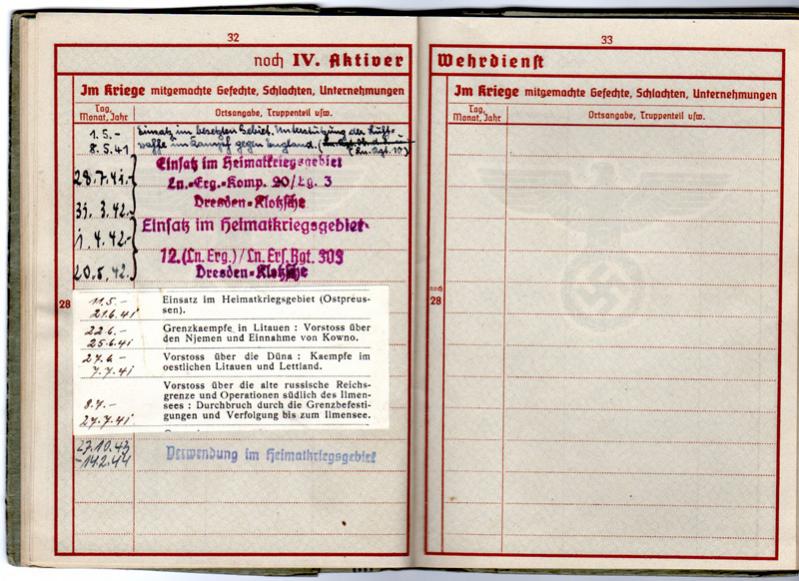 32
noch IV. Aktiver
Im Kriege mitgemachte Gefechte, Schlachten, Unternehmungen
Tag, Monat, Jahr
Ortsangabe, Truppenteil usw.
1.5.-
8.5.41
Einsatz im besetzten Gebiet. Unterstützung der Luft-
waffe im Kampf gegen England.
28.7.41.-
31.3.42.
Einsatz im Heimatkriegsgebiet
Ln.-Erg.-Komp. 20/Lg. 3
Dresden-Klotzsche
1.4.42.-
20.5.42.
Einsatz im Heimatkriegsgebiet
12.(Ln.Erg.)/Ln.Ers.Rgt. 303
Dresden-Klotzsche
28
11.5.-
21.6.41
Einsatz im Heimatkriegsgebiet (Ostpreus-
sen).
22.6.-
25.6.41
Grenzkaempfe in Litauen : Vorstoss über
den Njemen und Einnahme von Kowno.
27.6-
7.7.41
Vorstoss über die Düna : Kaempfe im
oestlichen Litauen und Lettland.
8.7.-
27.7.41
Vorstoss über die alte russische Reichs-
grenze und Operationen südlich des Ilmen-
sees : Durchbruch durch die Grenzbefesti-
gungen und Verfolgung bis zum Ilmensee.
27.10.43
-14.2.44
Verwendung im Heimatkriegsgebiet
33
Wehrdienst
Im Kriege mitgemachte Gefechte, Schlachten, Unternehmungen
Tag, Monat, Jahr
Ortsangabe, Truppenteil usw.
noch
28